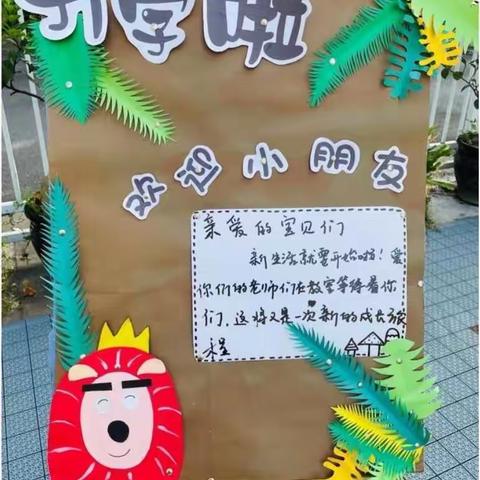 开学啦
欢迎小朋友
亲爱的宝贝们
新生活就要开始啦！爱
你们的老师们在教室等待着你
们，这将又是一次新的成长旅
程